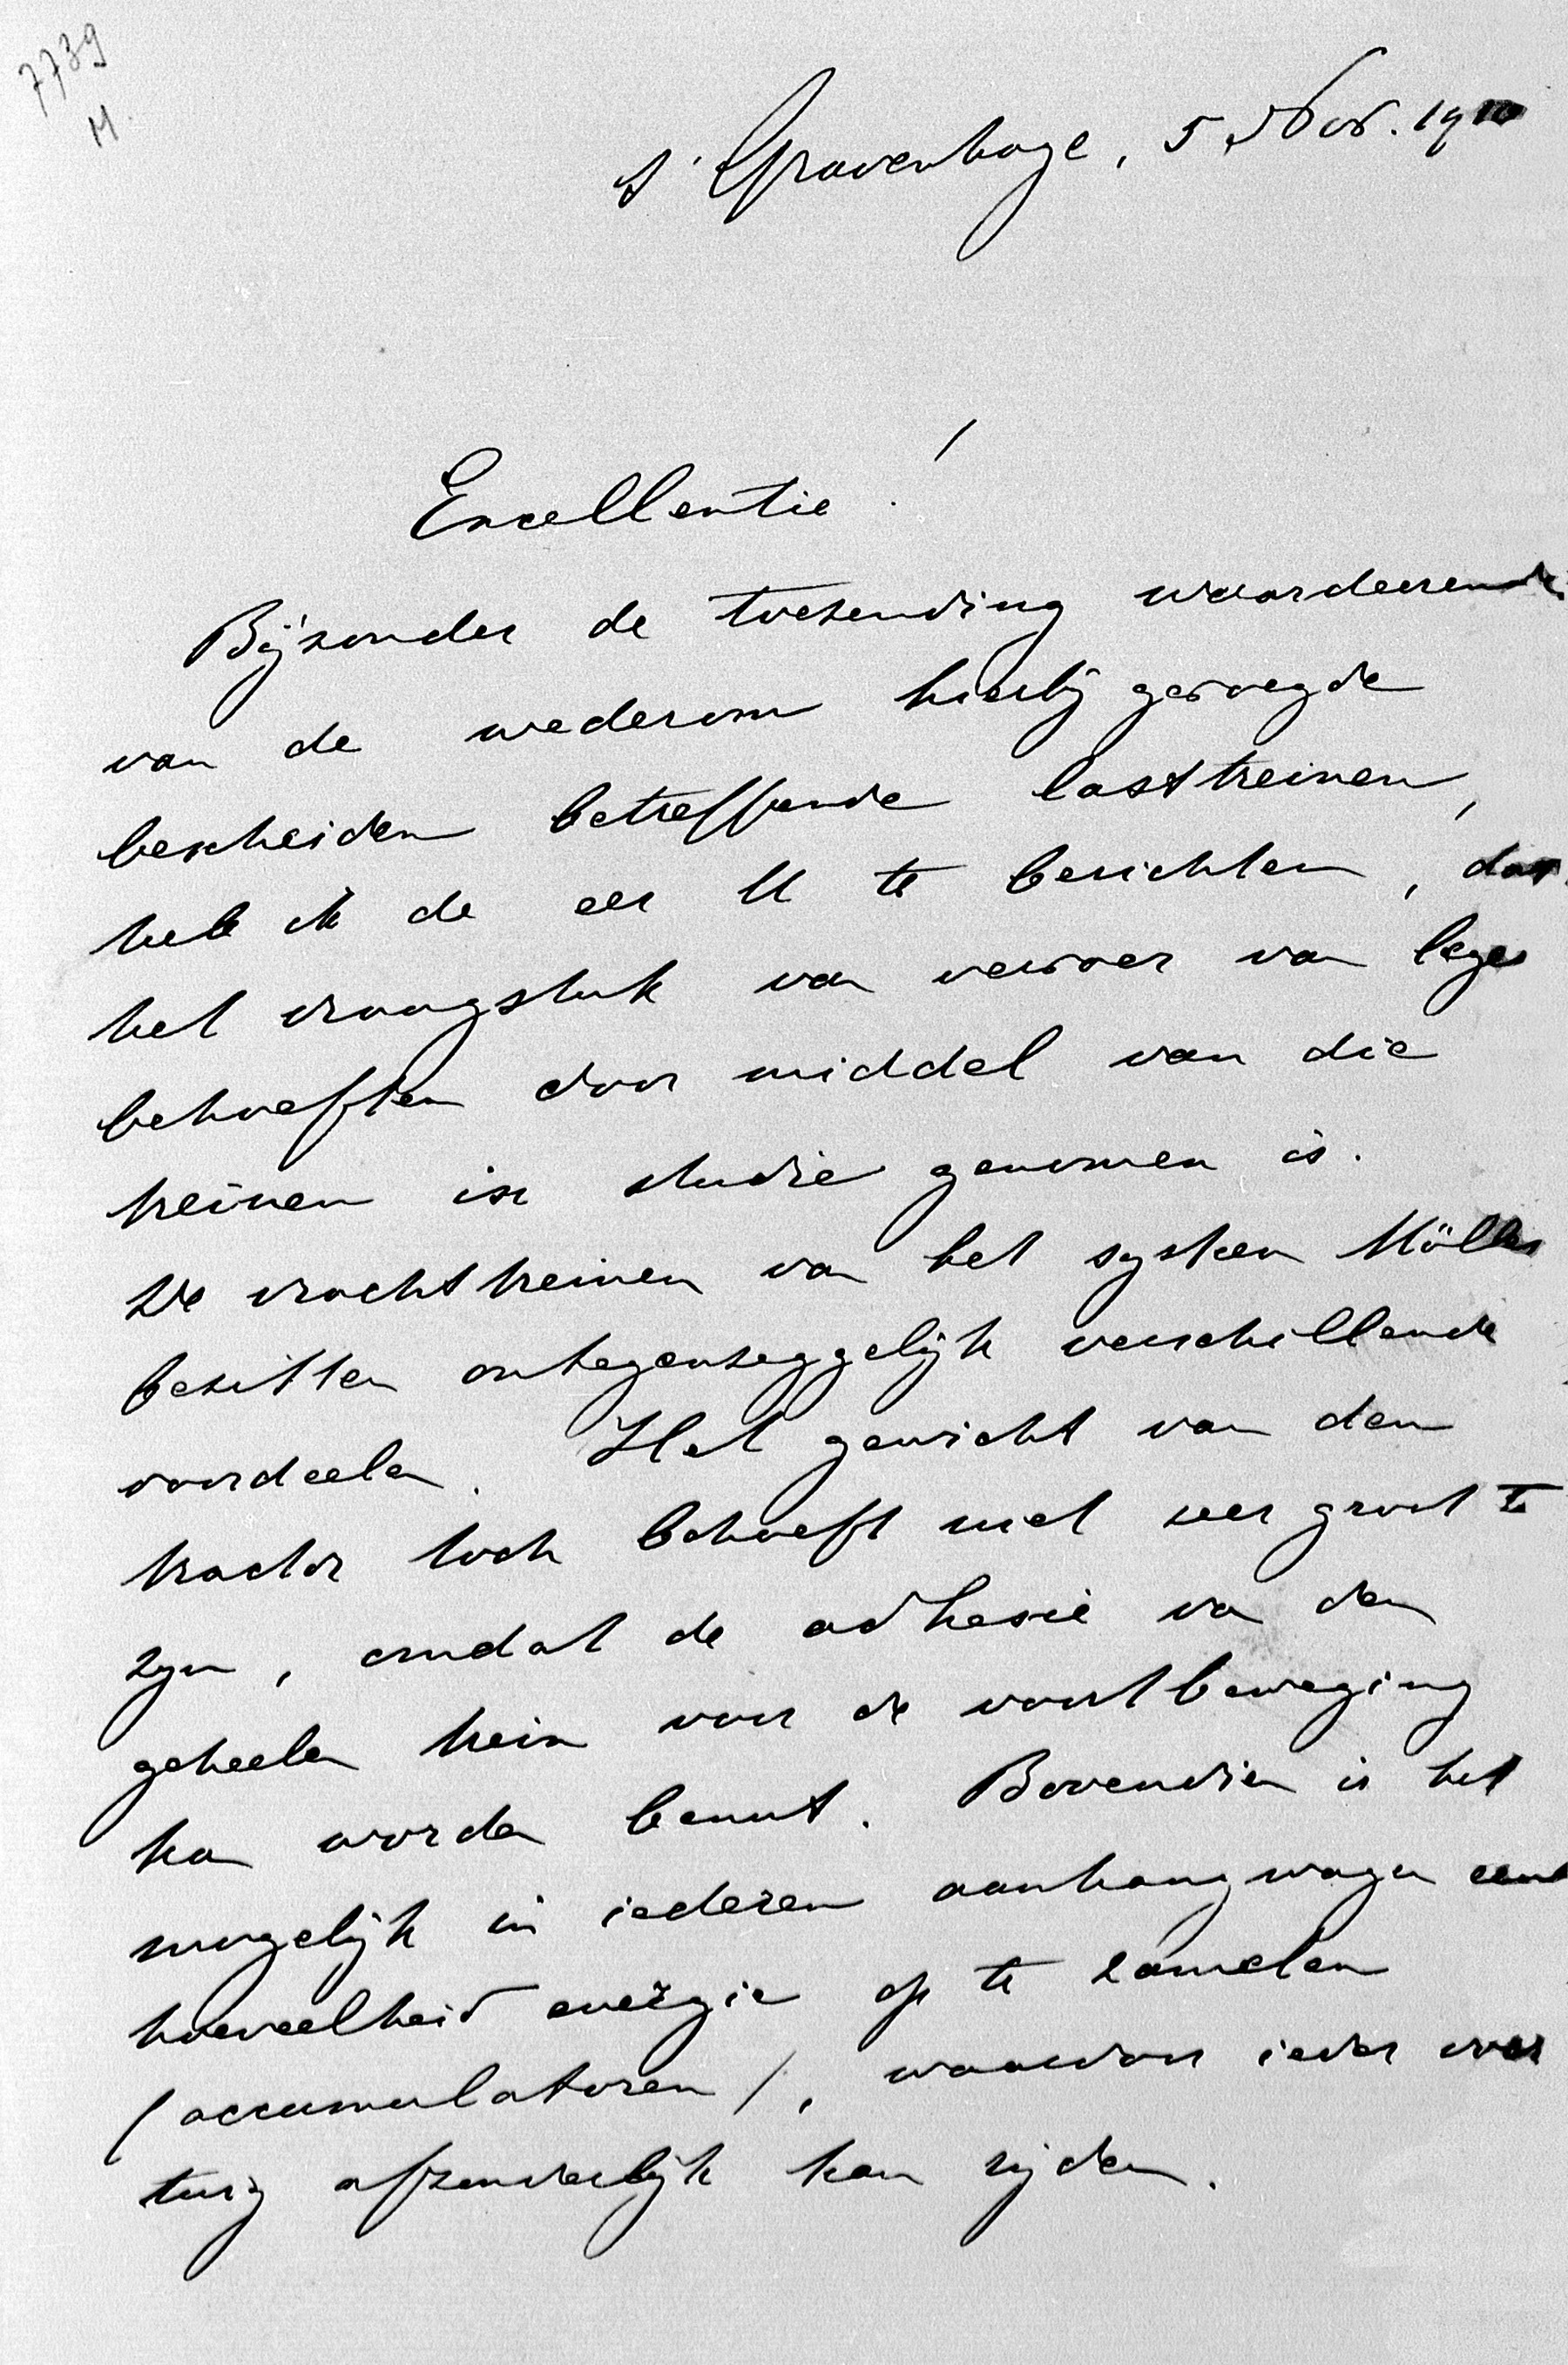 7739
M.
s' Gravenhage, 5 Nov. 1910
Excellentie!
Bijzonder de toezending waardeerende
van de wederom hierbij gevoegde
bescheiden betreffende lasttreinen,
heb ik de eer U te berichten, dat
het vraagstuk van vervoer van leger
behoeften door middel van die
treinen in studie genomen is.
De vrachttreinen van het systeem Müller
bezitten ontegenzeggelijk verschillende
voordeelen. Het gewicht van den
tractor toch behoeft niet zeer groot te
zijn, omdat de adhesie van den
geheelen trein voor de voortbeweging
kan worden benut. Bovendien is het
mogelijk in iederen aanhangwagen eene
hoeveelheid energie op te zamelen
(accumulatoren), waardoor ieder voer
tuig afzonderlijk kan rijden.